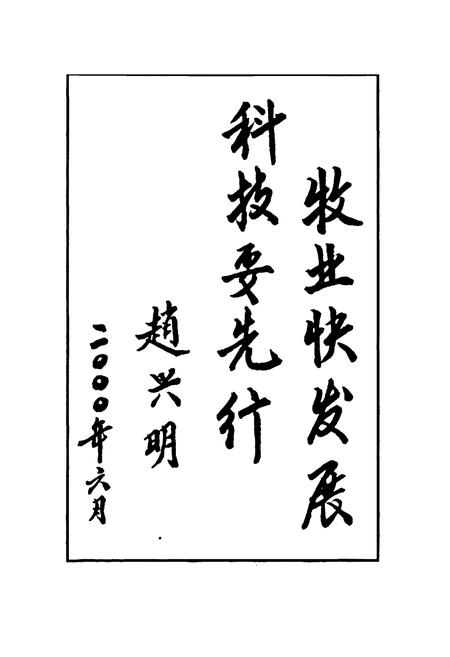 牧业快发展
科技要先行
趙兴明
二〇〇〇年六月